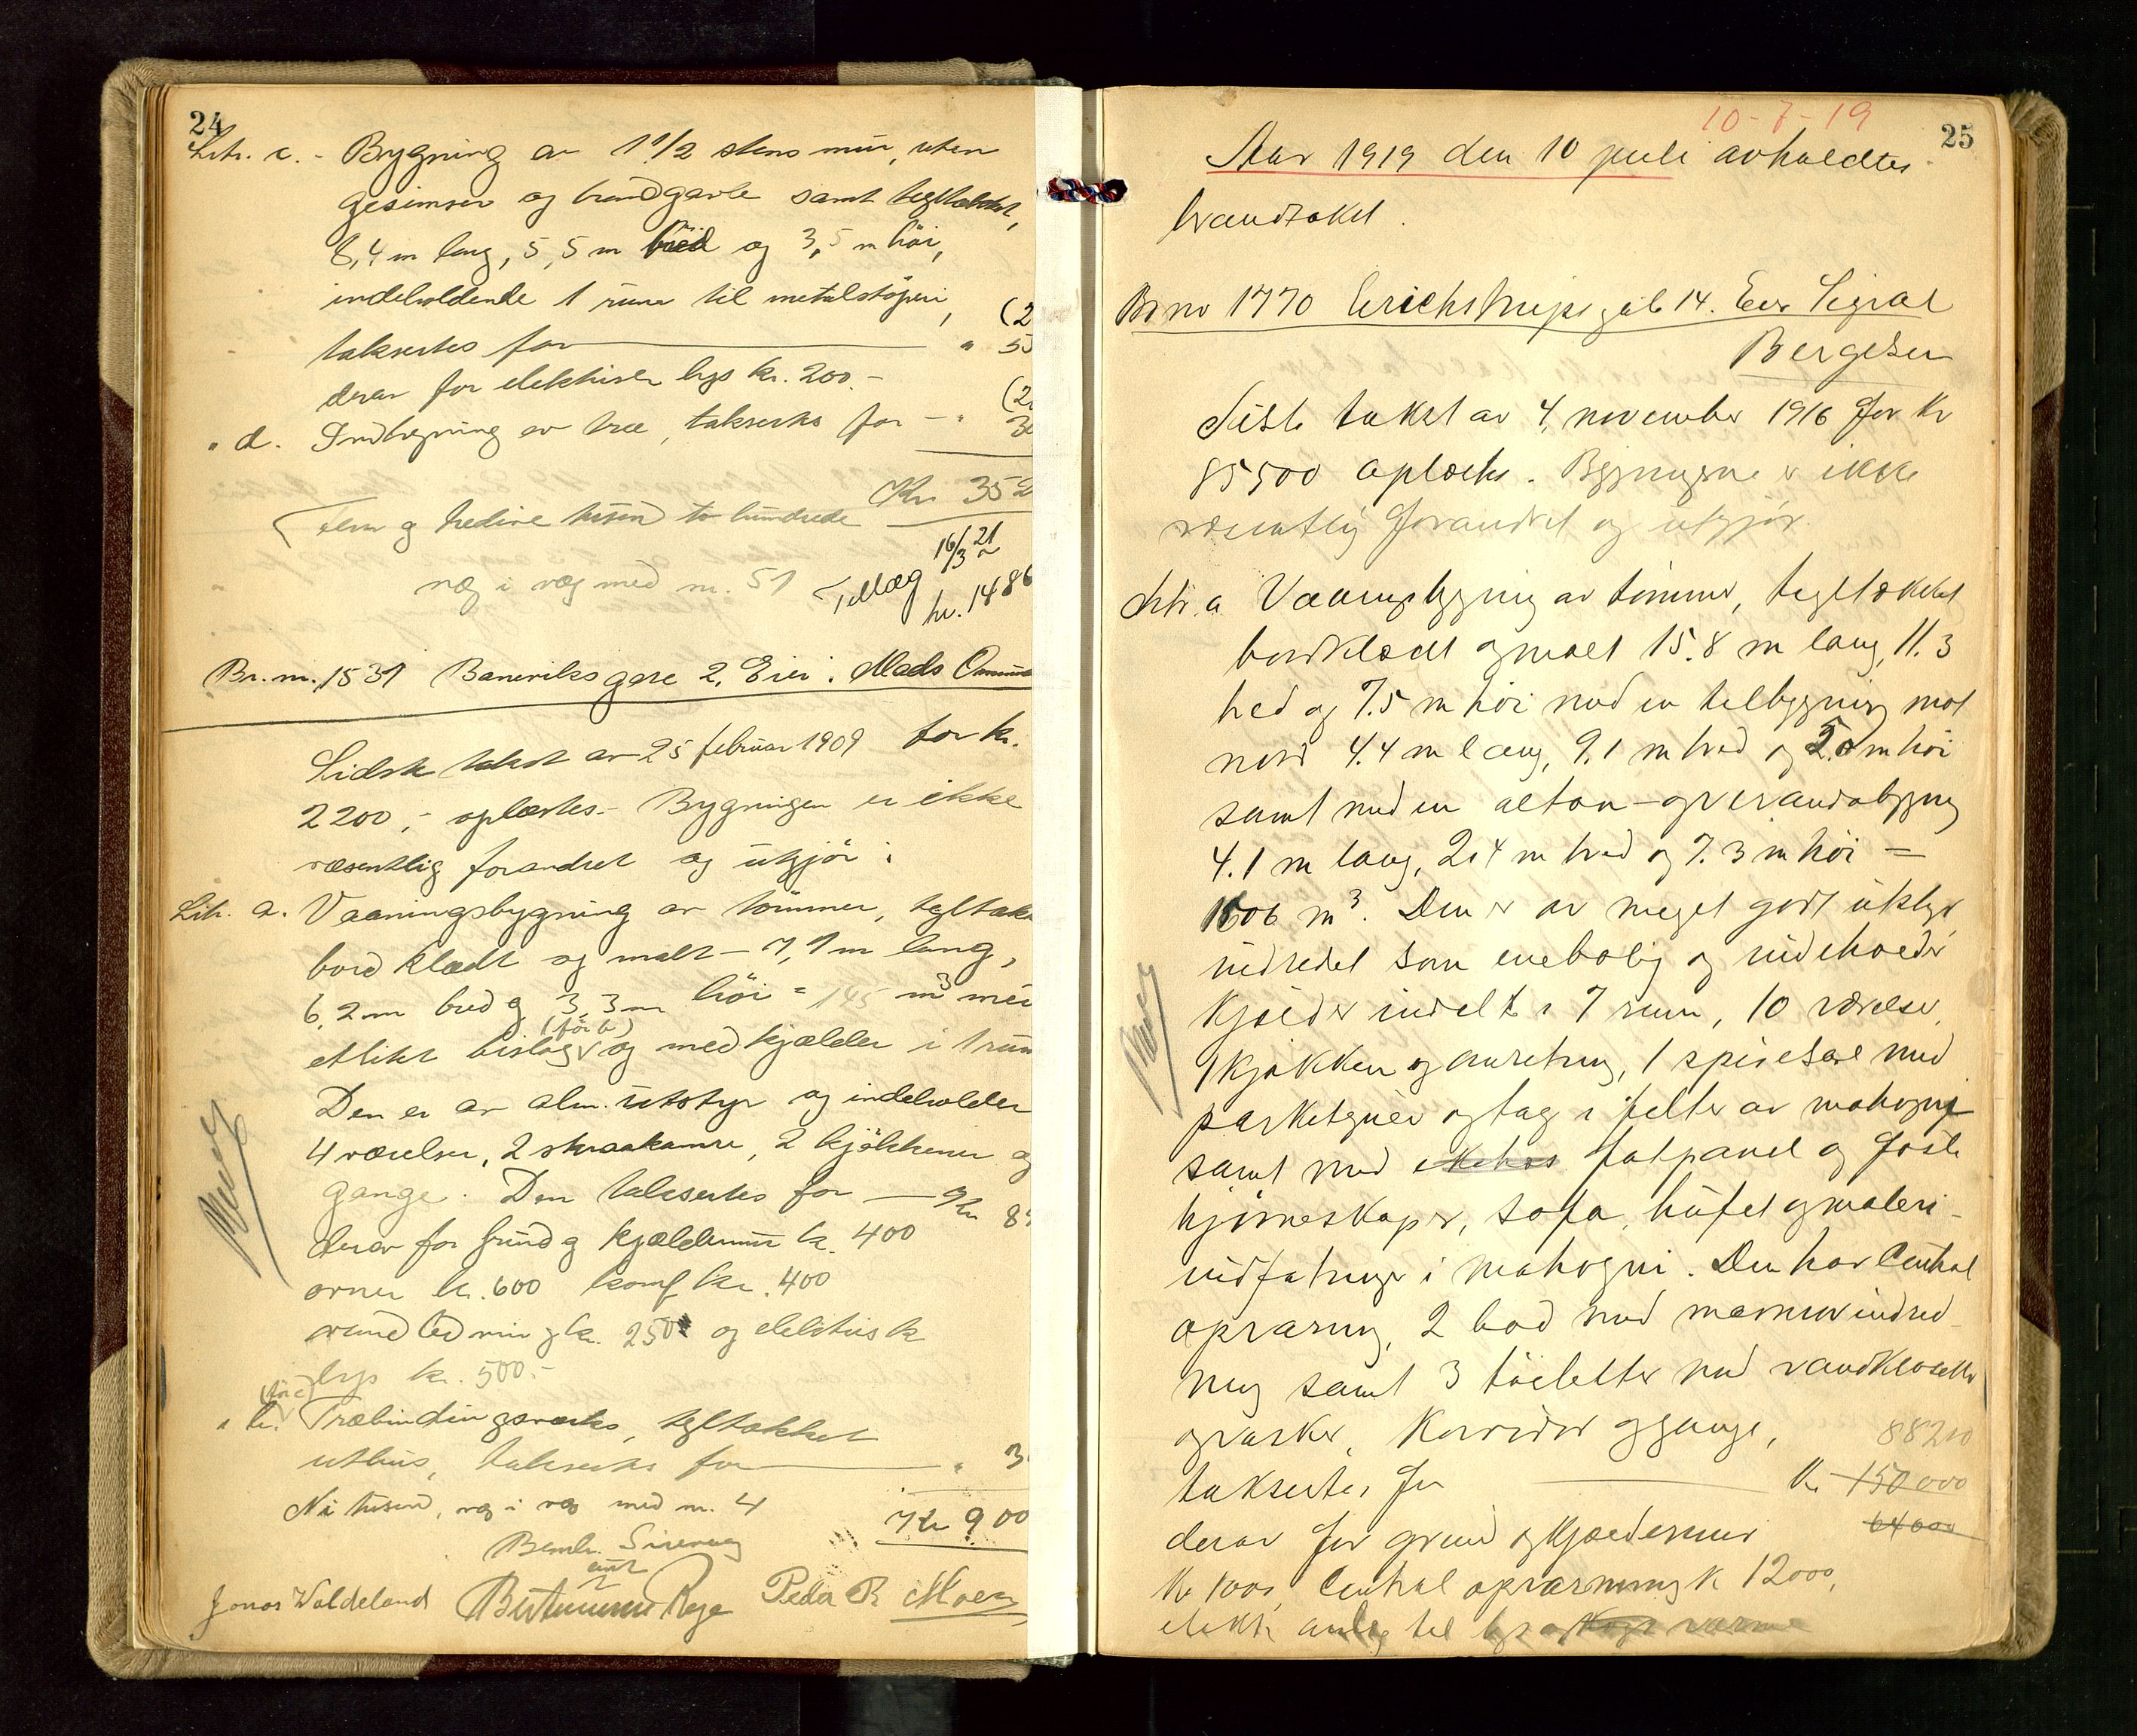 24
Litr. c. - Bygning av 1 1/2 stens mur, uten
gesimser og brandgavle samt tegltækket,
8,4 m lang, 5,5 m bred og 3,5 m höi,
indeholdende 1 rum til metalstøperi, (2
taksertes for " 55
derav for elektrisk lys kr. 200.- (2
" d. Indbygning av træ, takseres for - " 30
Kr. 352
Fem og tredive tusen to hundrede
16/3 21
væg i væg med nr. 51 Tillæg
kr. 1486
Br. nr. 1531 Baneviksgate 2. Eier: Mads
Sidste takst av 25 februar 1909 for kr.
2200,- oplæstes.- Bygningen er ikke
væsentlig forandret og utgjör:
Litr. a. Vaaningsbygning av tömmer, tegltæk
bordklædt og malt - 7,1 m lang,
6,2 m bred og 3,3 m höi = 145 m3 med
(för b)
etlikt bislag og med kjælder i 1 rum
Den er av alm. utstyr og indeholder
4 værelser, 2 skraakamre, 2 kjökkener og
gange. Den taksertes for — Kr 8
derav for grund og kjældermur kr. 400
ovner kr. 600 komf kr. 400
vandledning kr. 250 og elektrisk
lys kr. 500.-
(för c)
" b. Træbindingsværks, tegltækket
uthus, takseres for " 3
Ni tusend, væg i væg med nr. 4 Kr 900
Bernh. Sirevaag
Jonas Waldeland Peder R. Moen
10-7-19
25
Aar 1919 den 10 juli avholdtes
brandtakst.
Br nr 1770 Erichstrupsgate 14. Eier Sigval
Bergesen
Siste takst av 4. november 1916 for kr
85500 oplæstes. Bygningene er ikke
væsentlig forandret og utgjör.
Litr. a Vaaningsbygning av tömmer, tegltækket
bordklædt og malt 15.8 m lang, 11.3
bred og 7.5 m höi med en tilbygning mot
nord 4.4 m lang, 9.1 m bred og 5.0 m höi
samt med en altan- og verandabygning
4.1 m lang, 2.4 m bred og 7.3 m höi =
1606 m3. Den er av meget godt utstyr
indredet som enebolig og indeholder
kjælder indelt i 7 rum, 10 værelser,
1 kjökken og anretning, 1 spisesal med
parketgulv og tag i felter av mahogni
samt med fatpanel og faste
hjörneskaper, sofa, büfet og maleri-
indfatninger i mahogni. Den har Central
opvarmning, 2 bad med marmorindred-
ning samt 3 toiletter med vandklosetter
og vasker, korridor og gange, 88200
taksertes for Kr 150000
64000
derav for grund og kjældermur
kr 1000, Central opvarmning kr 12000,
elektr. anlæg til lys og koge varme